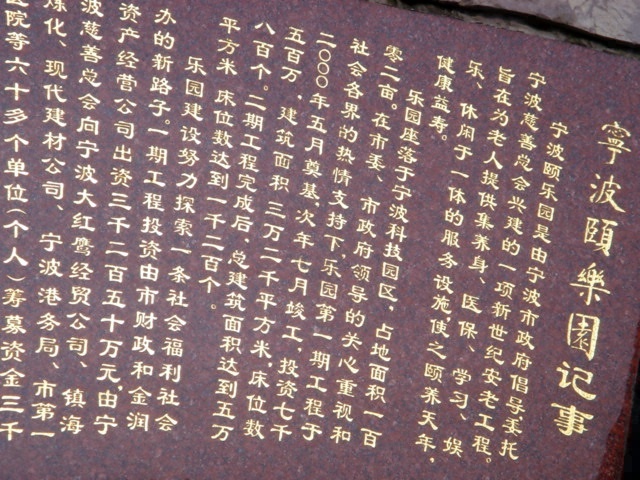 寧波頤樂園记事
宁波颐乐园是由宁波市政府倡导委托
宁波慈善总会兴建的一项新世纪安老工程。
旨在为老人提供集养身、医保、学习、娱
乐、休闲于一体的服务设施,使之颐养天年,
健康益寿。
乐园座落于宁波科技园区,占地面积一百
零二亩。在市委、市政府领导的关心重视和
社会各界的热情支持下,乐园第一期工程于
二000年五月奠基,次年七月竣工,投资七千
五百万,建筑面积三万二千平方米,床位数
八百个。二期工程完成后,总建筑面积达到五万
平方米 床位数达到一千二百个。
乐园建设努力探索一条社会福利社会
办的新路子。一期工程投资由市财政和金润
资产经营公司出资三千二百五十万元,由宁
波慈善总会向宁波大红鹰经贸公司、镇海
炼化、现代建材公司、宁波港务局、市第一
医院等六十多个单位(个人)筹募资金三千